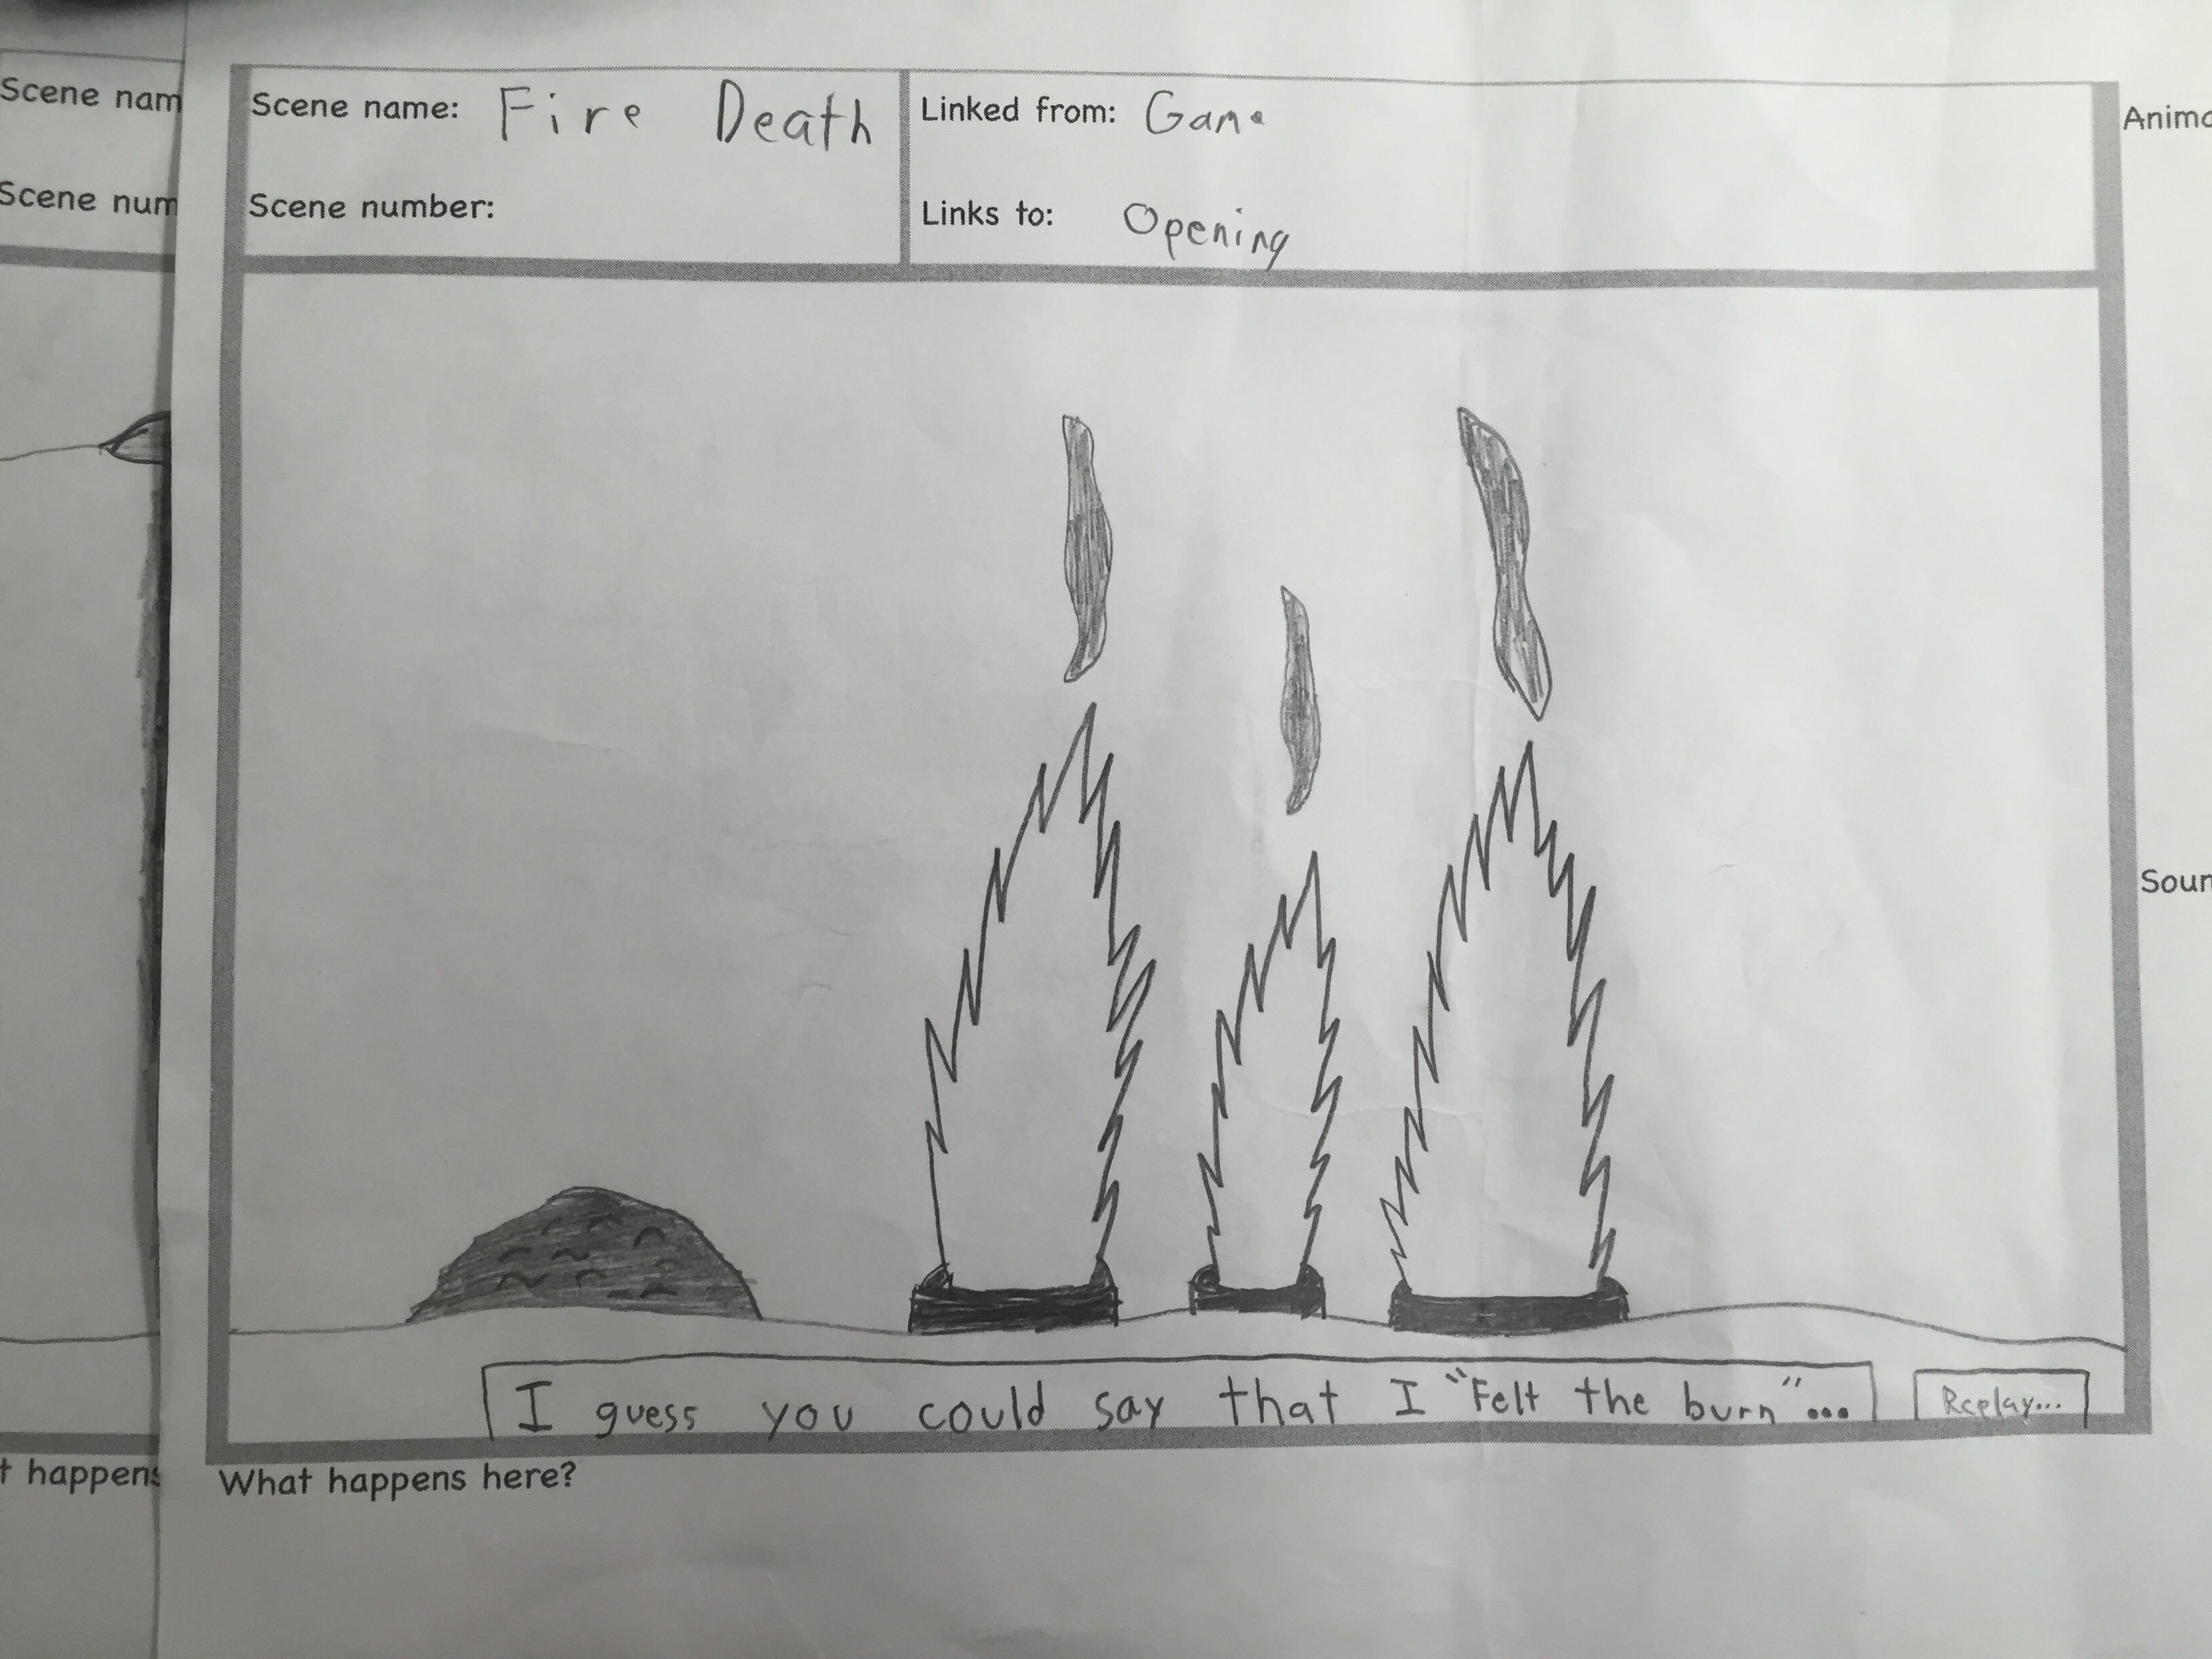 Scene nam
Scene num
t happens
Scene name: Fire Death
Scene number:
Linked from: Game
Links to: Opening
I guess you could say that I "Felt the burn"...
Replay...
What happens here?
Anima
Soun